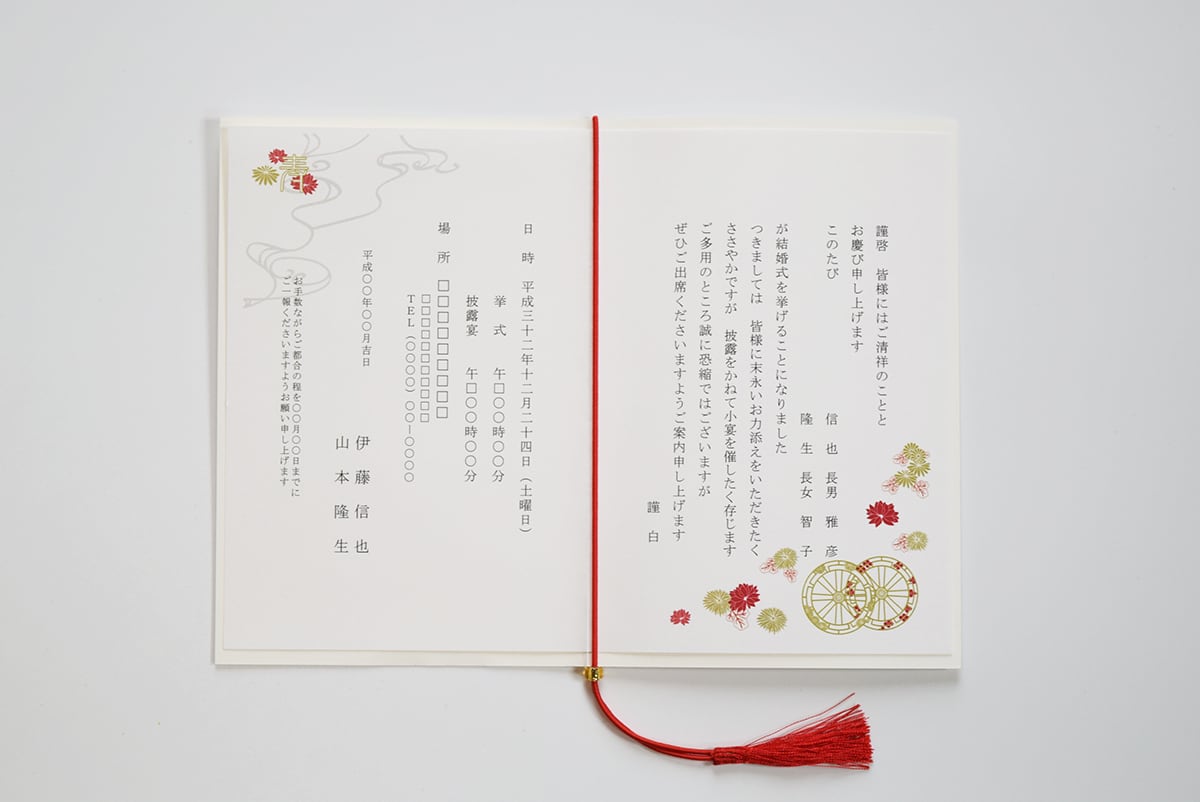 謹啓　皆様にはご清祥のことと
お慶び申し上げます
このたび
信也 長男 雅彦
隆生 長女 智子
が結婚式を挙げることになりました
つきましては　皆様に末永いお力添えをいただきたく
ささやかですが　披露をかねて小宴を催したく存じます
ご多用のところ誠に恐縮ではございますが
ぜひご出席くださいますようご案内申し上げます
謹白
日時 平成三十二年十二月二十四日（土曜日）
挙式 午□〇〇時〇〇分
披露宴 午□〇〇時〇〇分
場所 □□□□□□□□□
□□□□□□□□□
TEL（〇〇〇〇）〇〇ー〇〇〇〇
平成〇〇年〇〇月吉日
伊藤信也
山本隆生
お手数ながらご都合の程を〇〇月〇〇日までに
ご一報くださいますようお願い申し上げます
寿